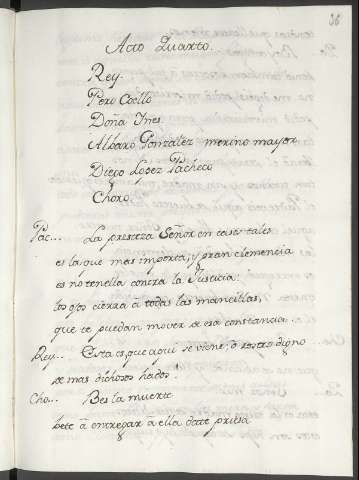 36
Acto Quarto.
Rey.
Pero Coello
Doña Ines
Albaro Gonzalez merino mayor
Diego Lopez Pacheco
Choro.
Pac... La presteza Señor en casos tales
es la que mas importa, y gran clemencia
es no tenella contra la Justicia:
los ojos cierra à todas las mancillas,
que te puedan mover de esa constancia.
Rey... Esta es, que aqui se viene; o rostro digno
de mas dichosos hados!
Cho... Ves la muerte
bete à entregar a ella date priesa